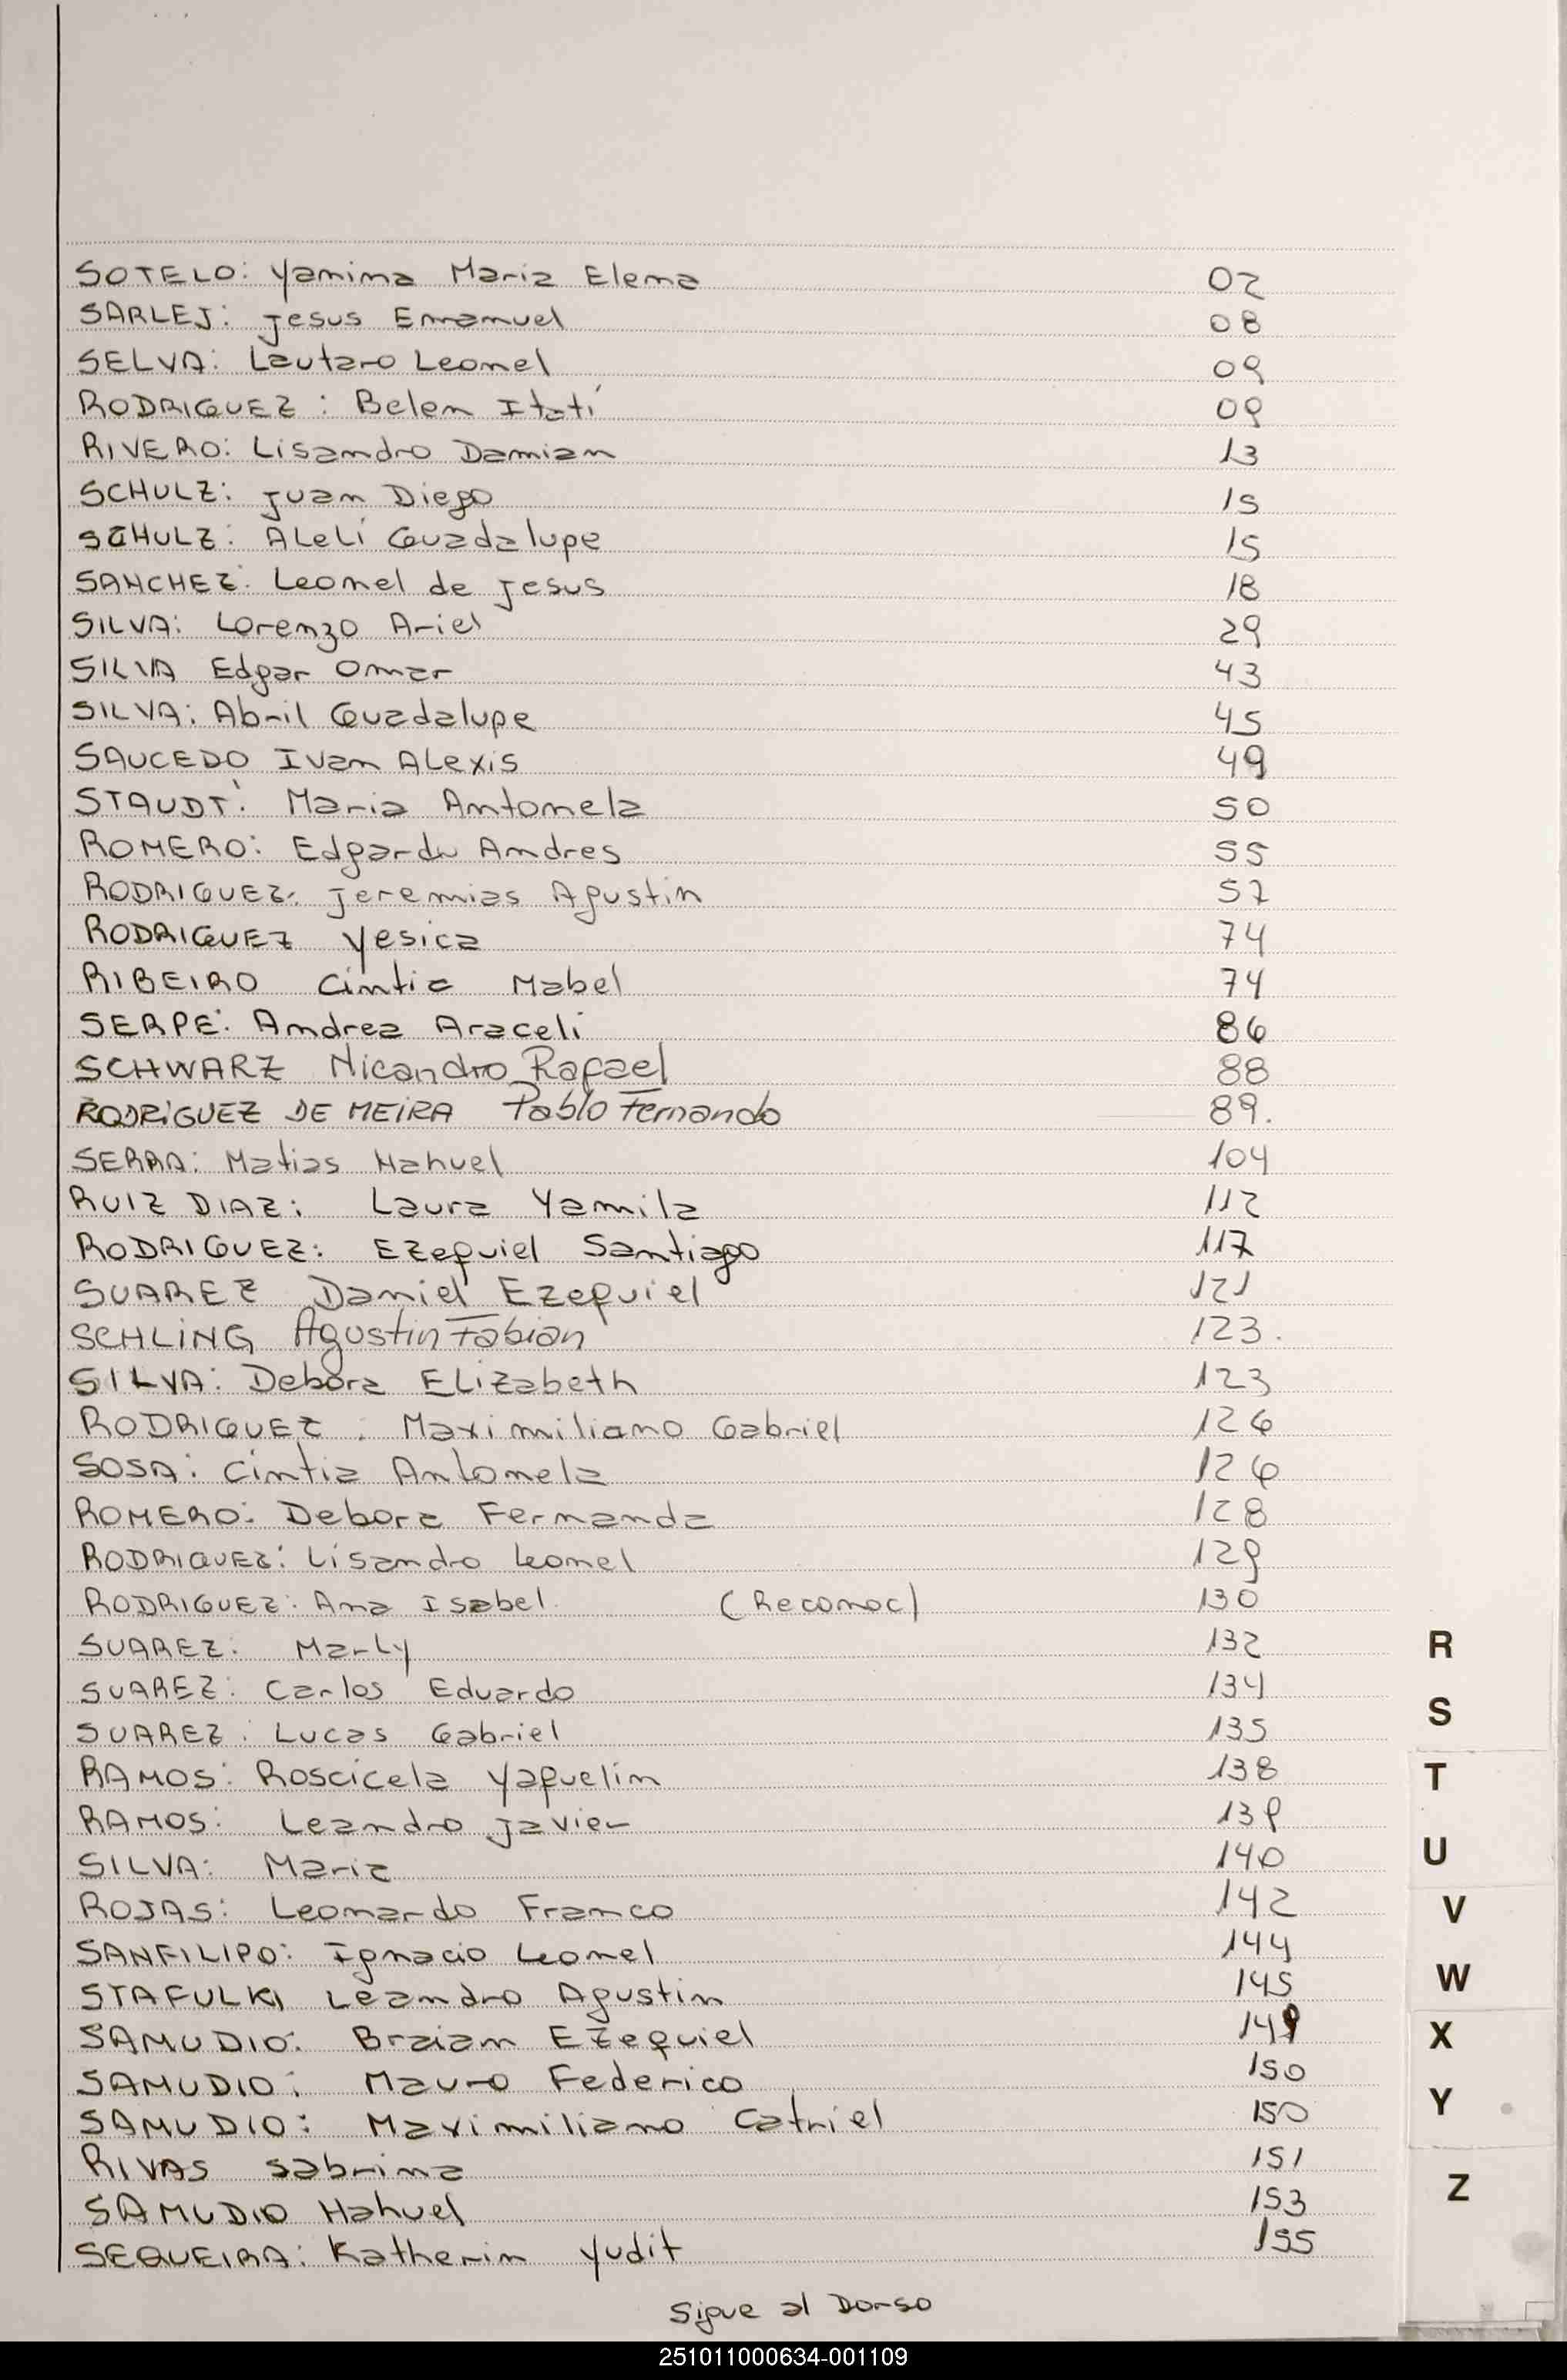 SOTELO: Yamina Maria Elena 02
SARLEJ: Jesus Emanuel 08
SELVA: Lautaro Leonel 09
RODRIGUEZ: Belen Itatí 09
RIVERO: Lisandro Damian 13
SCHULZ: Juan Diego 15
SCHULZ: Alelí Guadalupe 15
SANCHEZ: Leonel de Jesus 18
SILVA: Lorenzo Ariel 29
SILVA Edgar Omar 43
SILVA: Abril Guadalupe 45
SAUCEDO Ivan Alexis 49
STAUDT: Maria Antonela 50
ROMERO: Edgardo Andres 55
RODRIGUEZ: Jeremias Agustin 57
RODRIGUEZ Yesica 74
RIBEIRO Cintia Mabel 74
SERPE: Andrea Araceli 86
SCHWARZ Nicandro Rafael 88
RODRIGUEZ DE MEIRA Pablo Fernando 89.
SERRA: Matias Nahuel 104
RUIZ DIAZ: Laura Yamila 112
RODRIGUEZ: Ezequiel Santiago 117
SUAREZ Daniel Ezequiel 121
SCHLING Agustin Fabian 123.
SILVA: Debora Elizabeth 123
RODRIGUEZ: Maximiliano Gabriel 126
SOSA: Cintia Antonela 126
ROMERO: Debora Fernanda 128
RODRIGUEZ: Lisandro Leonel 129
RODRIGUEZ: Ana Isabel (Reconoc) 130
SUAREZ: Marly 132
R
SUAREZ: Carlos Eduardo 134
S
SUAREZ: Lucas Gabriel 135
RAMOS: Roscicela Yaquelin 138
T
RAMOS: Leandro Javier 139
SILVA: Maria 140
U
ROJAS: Leonardo Franco 142
V
SANFILIPO: Ignacio Leonel 144
STAFULKI Leandro Agustin 145
W
SAMUDIO: Braian Ezequiel 149
X
SAMUDIO: Mauro Federico 150
SAMUDIO: Maximiliano Catriel 150
Y
RIVAS Sabrina 151
SAMUDIO Nahuel 153
Z
SEQUEIRA: Katherin Yudit 155
Sigue al Dorso
251011000634-001109